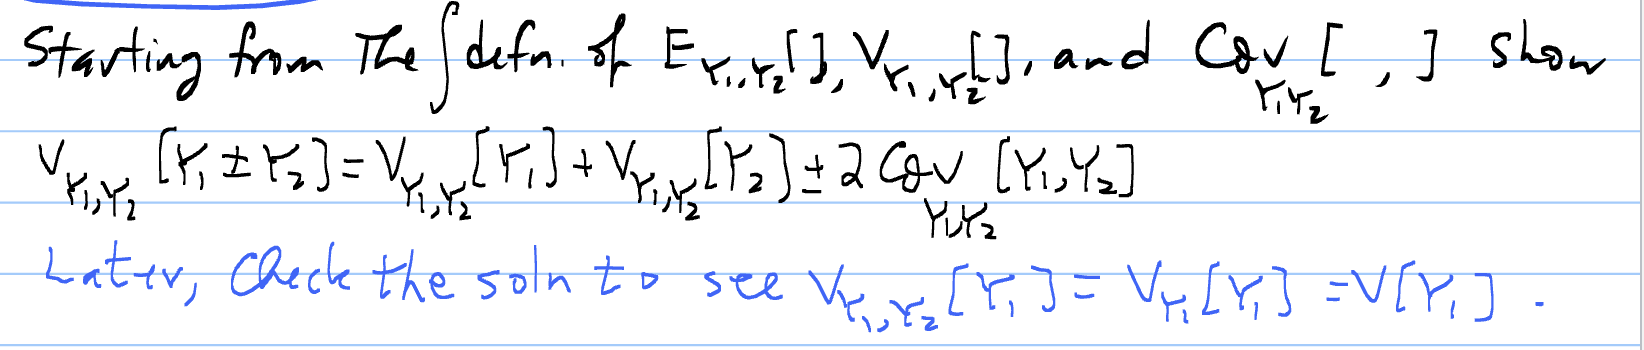 Starting from The ∫ defn. of E_{Y₁,Y₂}[], V_{Y₁,Y₂}[], and Cov_{Y₁Y₂}[ , ] show
V_{Y₁,Y₂}[Y₁ ± Y₂] = V_{Y₁,Y₂}[Y₁] + V_{Y₁,Y₂}[Y₂] ± 2 Cov_{Y₁,Y₂}[Y₁,Y₂]
Later, Check the soln to see V_{Y₁,Y₂}[Y₁] = V_{Y₁}[Y₁] = V[Y₁].